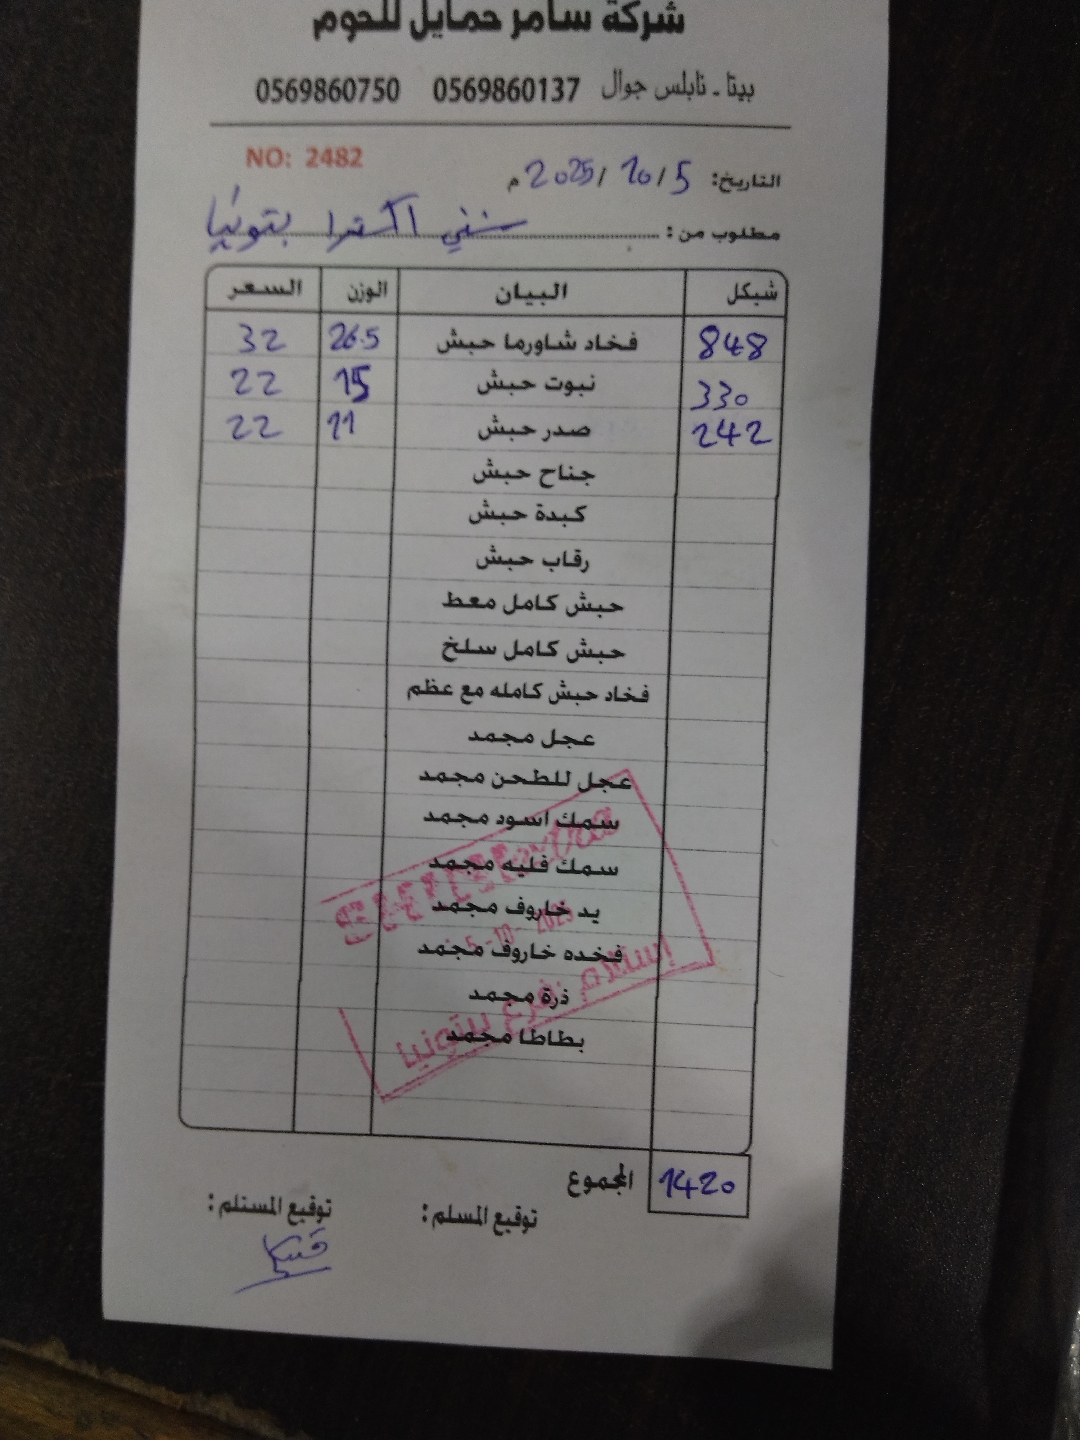 شركة سامر حمايل للحوم
بيتا - نابلس جوال 0569860137 0569860750
NO: 2482
التاريخ: 5 / 10 / 2025 م
مطلوب من: سني اكسترا بتونيا
شيكل البيان الوزن السعر
848 فخاد شاورما حبش 26.5 32
330 نبوت حبش 15 22
242 صدر حبش 11 22
جناح حبش
كبدة حبش
رقاب حبش
حبش كامل معط
حبش كامل سلخ
فخاد حبش كامله مع عظم
عجل مجمد
عجل للطحن مجمد
سمك اسود مجمد
سمك فليه مجمد
يد خاروف مجمد
فخده خاروف مجمد
ذرة مجمد
بطاطا مجمد
5-10-2025
استلام فرع بيتونيا
المجموع 1420
توقيع المسلم: توقيع المستلم: